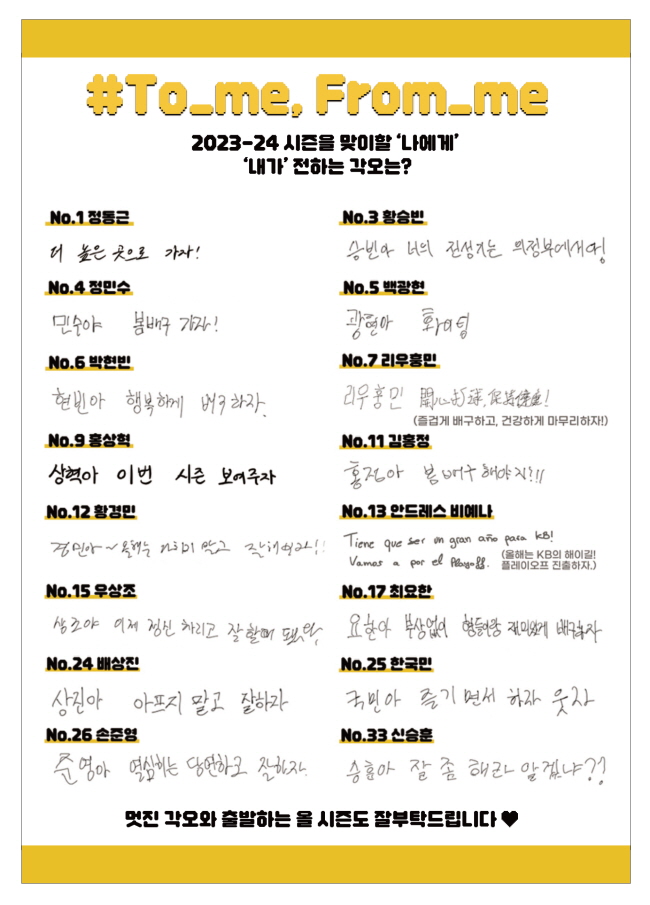 #To_me, From_me
2023-24 시즌을 맞이할 ‘나에게’
‘내가’ 전하는 각오는?
No.1 정동근
더 높은 곳으로 가자!
No.3 황승빈
승빈아 너의 전성기는 의정부에서야!
No.4 정민수
민수야 봄배구 가자!
No.5 백광현
광현아 화이팅
No.6 박현빈
현빈아 행복하게 배구하자.
No.7 리우훙민
리우훙민 開心打球,保持健康!
(즐겁게 배구하고, 건강하게 마무리하자!)
No.9 홍상혁
상혁아 이번 시즌 보여주자
No.11 김홍정
홍정아 봄배구 해야지!!!
No.12 황경민
경민아~ 올해는 다치지 말고 잘해보자!!
No.13 안드레스 비예나
Tiene que ser un gran año para KB!
Vamos a por el Playoff.
(올해는 KB의 해이길!
플레이오프 진출하자.)
No.15 우상조
상조야 이제 정신 차리고 잘할때 됐다
No.17 최요한
요한아 부상없이 형들이랑 재미있게 배구하자
No.24 배상진
상진아 아프지 말고 잘하자
No.25 한국민
국민아 즐기면서 하자 웃자
No.26 손준영
준영아 열심히는 당연하고 잘하자.
No.33 신승훈
승훈아 잘 좀 해라 알겠냐??
멋진 각오와 출발하는 올 시즌도 잘부탁드립니다 ♥